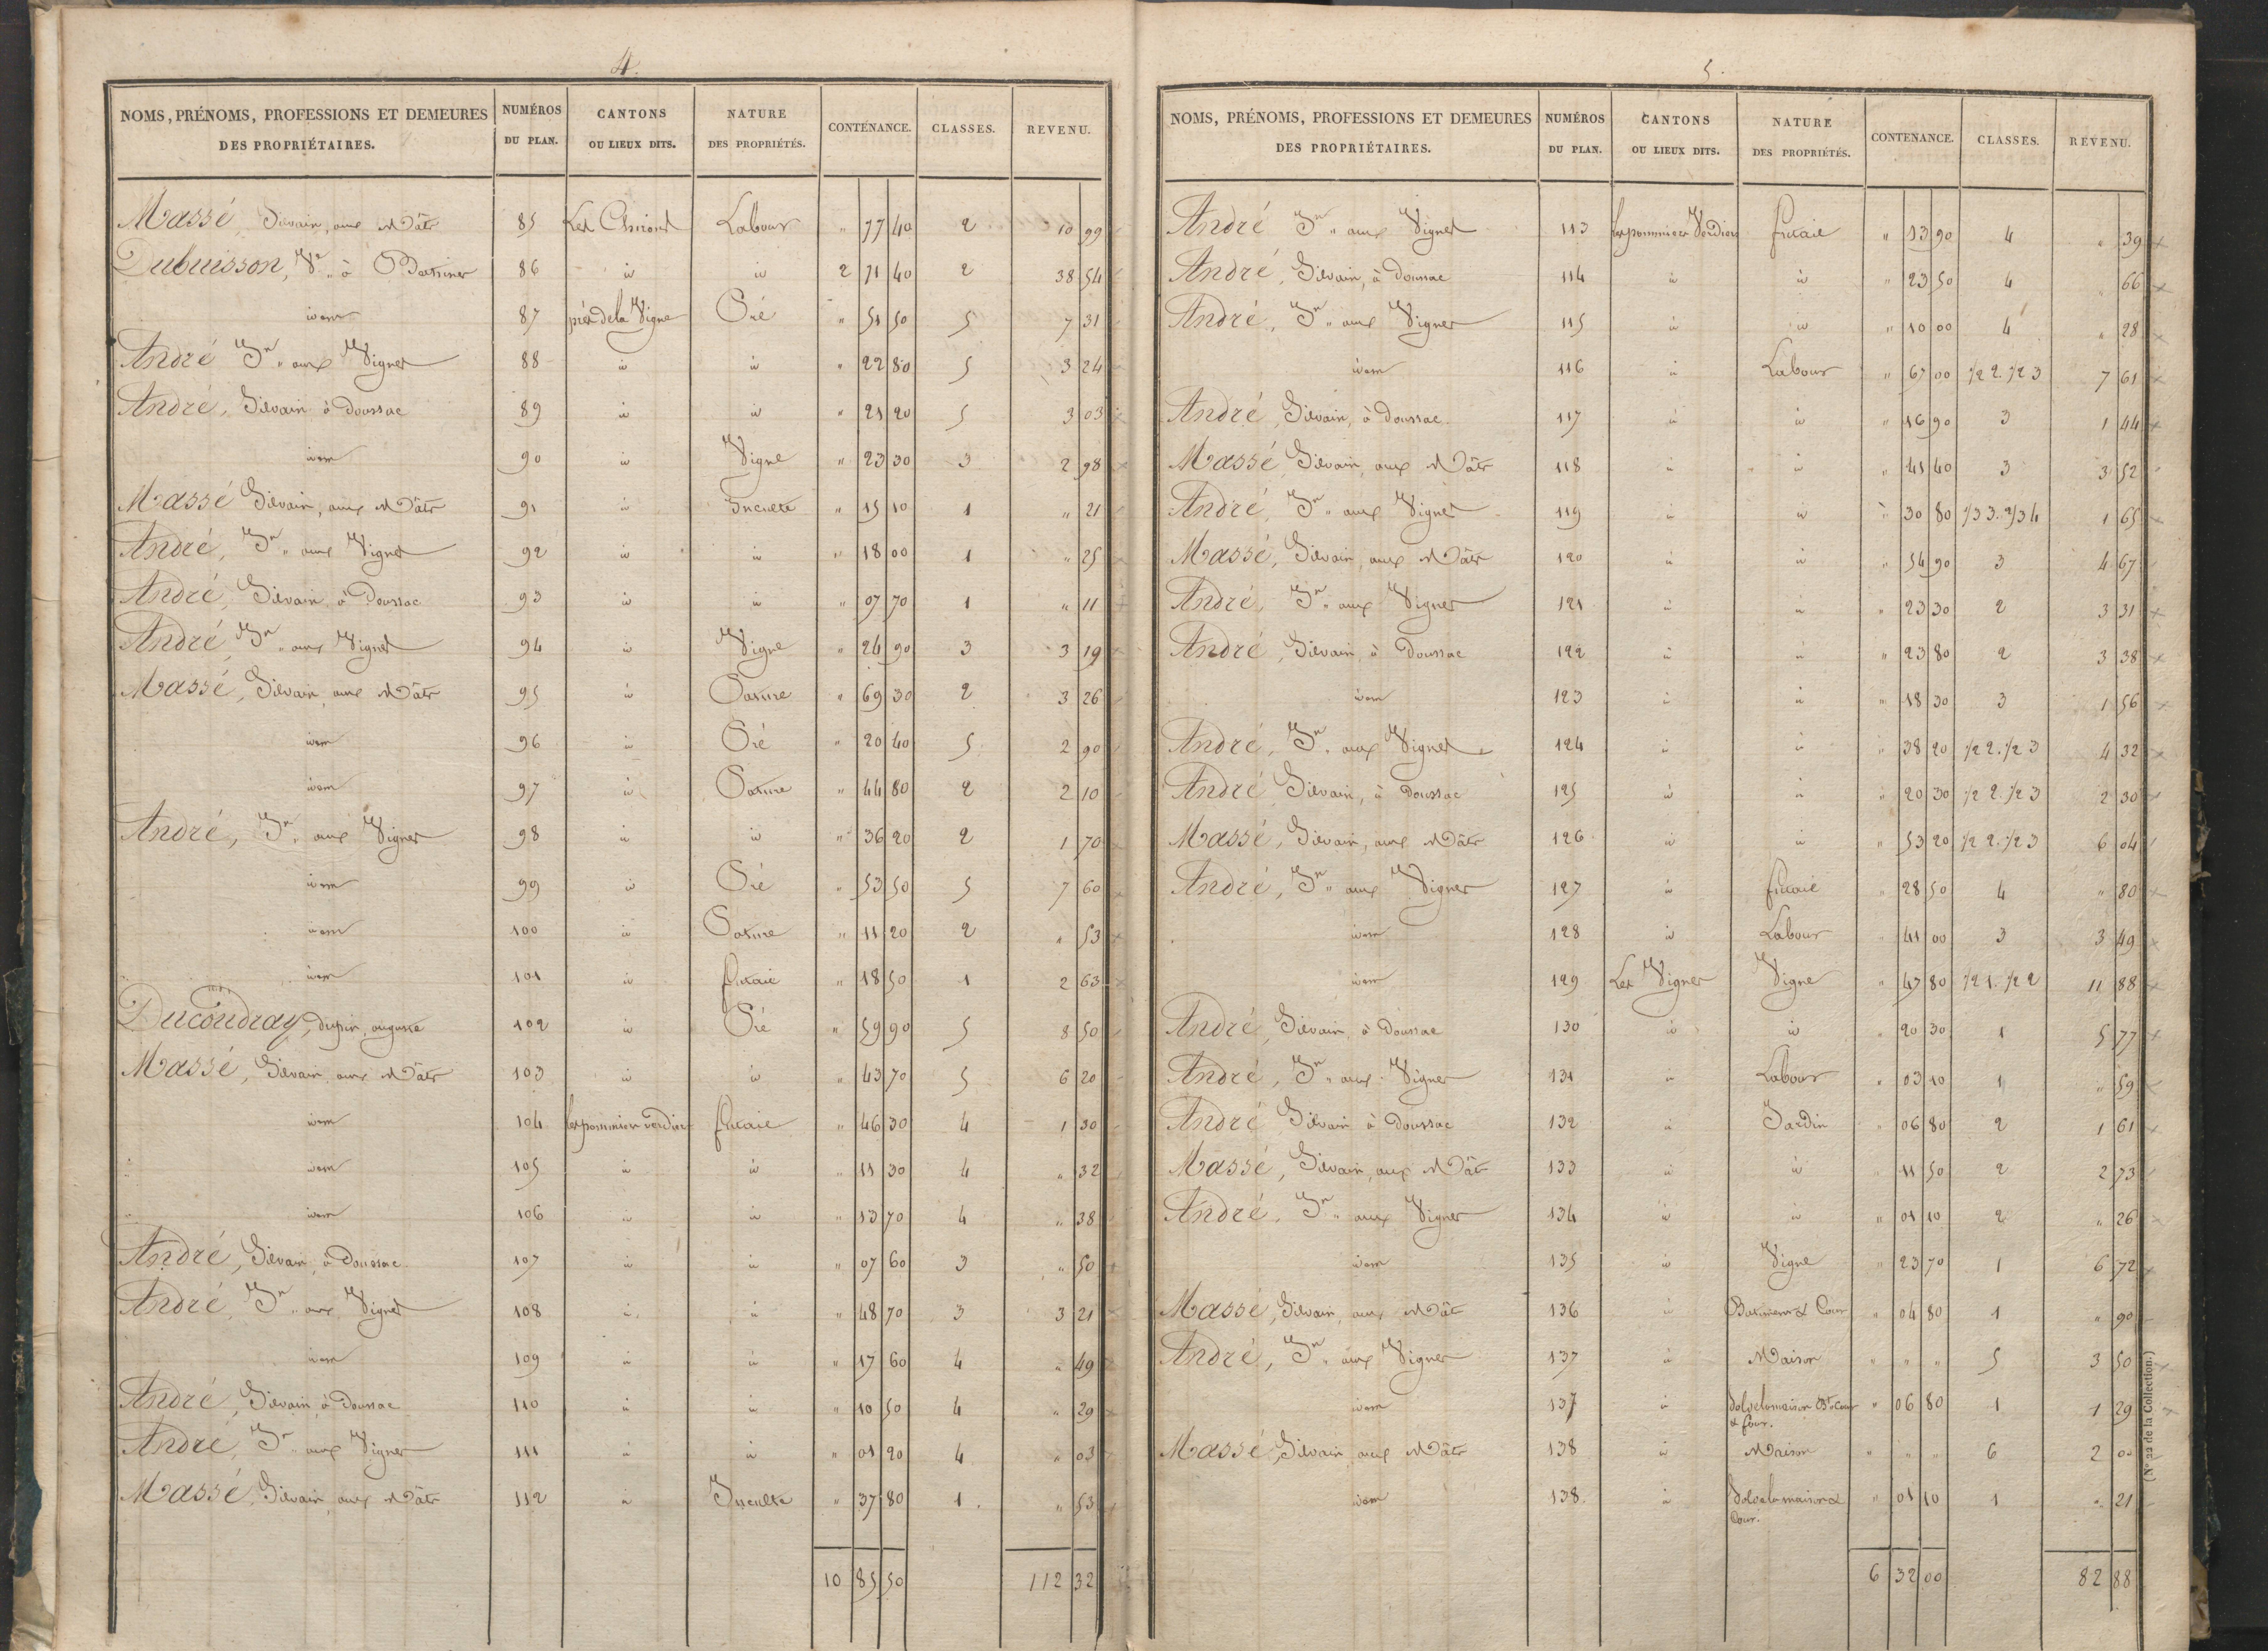 4.
NOMS, PRÉNOMS, PROFESSIONS ET DEMEURES DES PROPRIÉTAIRES. NUMÉROS DU PLAN. CANTONS OU LIEUX DITS. NATURE DES PROPRIÉTÉS. CONTENANCE. CLASSES. REVENU.
Massé, Silvain, aux Mâts 85 Les Chirons Labour " 77 40 2 10 99
Dubuisson, Ve. à 86 id id 2 71 40 2 38 54
idem 87 près de la Vigne Pré " 51 50 5 7 31
André Jn. aux Vignes 88 id id " 22 80 5 3 24
André, Silvain à Doussac 89 id id " 21 20 5 3 03
idem 90 id Vigne " 23 30 3 2 98
Massé Silvain, aux Mâts 91 id Inculte " 15 10 1 " 21
André, Jn. aux Vignes 92 id id " 18 00 1 " 25
André, Silvain, à Doussac 93 id id " 07 70 1 " 11
André, Jn. aux Vignes 94 id Vigne " 24 90 3 3 19
Massé, Silvain, aux Mâts 95 id Pature " 69 30 2 3 26
idem 96 id Pré " 20 40 5 2 90
idem 97 id Pature " 44 80 2 2 10
André, Jn. aux Vignes 98 id id " 36 20 2 1 70
idem 99 id Pré " 53 50 5 7 60
idem 100 id Pature " 11 20 2 " 53
idem 101 id futaie " 18 50 1 2 63
Ducoudray, dupin, auguste 102 id Pré " 59 90 5 8 50
Massé, Silvain, aux Mâts 103 id id " 43 70 5 6 20
idem 104 les pommiers verdiers futaie " 46 30 4 1 30
idem 105 id id " 11 30 4 " 32
idem 106 id id " 13 70 4 " 38
André, Silvain, à Doussac 107 id id " 07 60 3 " 50
André, Jn. aux Vignes 108 id id " 48 70 3 3 21
idem 109 id id " 17 60 4 " 49
André, Silvain, à Doussac 110 id id " 10 50 4 " 29
André, Jn. aux Vignes 111 id id " 01 20 4 " 03
Massé, Silvain, aux Mâts 112 id Inculte " 37 80 1 " 53
10 85 50 112 32
5.
NOMS, PRÉNOMS, PROFESSIONS ET DEMEURES DES PROPRIÉTAIRES. NUMÉROS DU PLAN. CANTONS OU LIEUX DITS. NATURE DES PROPRIÉTÉS. CONTENANCE. CLASSES. REVENU.
André Jn. aux Vignes 113 les pommiers Verdiers futaie " 13 90 4 " 39
André, Silvain, à Doussac 114 id id " 23 50 4 " 66
André, Jn. aux Vignes 115 id id " 10 00 4 " 28
idem 116 id Labour " 67 00 1/2 2. 1/2 3 7 61
André, Silvain, à Doussac 117 id id " 16 90 3 1 44
Massé, Silvain, aux Mâts 118 id id " 41 40 3 3 52
André, Jn. aux Vignes 119 id id " 30 80 1/3 3. 2/3 4 1 65
Massé, Silvain, aux Mâts 120 id id " 54 90 3 4 67
André, Jn. aux Vignes 121 id id " 23 30 2 3 31
André, Silvain, à Doussac 122 id id " 23 80 2 3 38
idem 123 id id " 18 30 3 1 56
André, Jn. aux Vignes 124 id id " 38 20 1/2 2. 1/2 3 4 32
André Silvain, à Doussac 125 id id " 20 30 1/2 2. 1/2 3 2 30
Massé, Silvain, aux Mâts 126 id id " 53 20 1/2 2. 1/2 3 6 04
André, Jn. aux Vignes 127 id futaie " 28 50 4 " 80
idem 128 id Labour " 41 00 3 3 49
idem 129 Les Vignes Vigne " 47 80 1/2 1. 1/2 2 11 88
André, Silvain, à Doussac 130 id id " 20 30 1 5 77
André, Jn. aux Vignes 131 id Labour " 03 10 1 " 59
André Silvain à Doussac 132 id Jardin " 06 80 2 1 61
Massé, Silvain, aux Mâts 133 id id " 11 50 2 2 73
André, Jn. aux Vignes 134 id id " 01 10 2 " 26
idem 135 id Vigne " 23 70 1 6 72
Massé, Silvain, aux Mâts 136 id Batiment & Cour " 04 80 1 " 90
André, Jn. aux Vignes 137 id Maison " " " 5 3 50
idem 137 id Sol de la maison Bt. cour & four. " 06 80 1 1 29
Massé, Silvain, aux Mâts 138 id Maison " " " 6 2 00
idem 138 id Sol de la maison & Cour. " 01 10 1 " 21
6 32 00 82 88
(N° 22 de la Collection.)